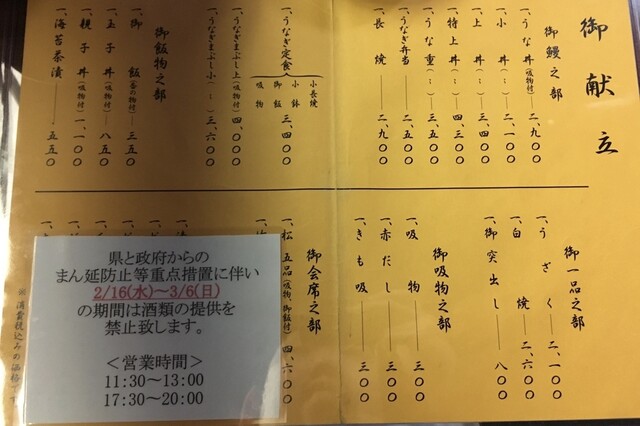 御献立
御鰻之部
一、うな丼(吸物付)―二、九〇〇
一、小丼(〃)―二、一〇〇
一、上丼(〃)―三、四〇〇
一、特上丼(〃)―四、三〇〇
一、うな重(〃)―三、五〇〇
一、うなぎ弁当―二、九〇〇
一、長焼―二、九〇〇
一、うなぎ定食 小長焼 小鉢 御飯 吸物 三、四〇〇
一、うなぎまぶし上(吸物付)四、〇〇〇
一、うなぎまぶし小(〃)三、六〇〇
御飯物之部
一、御飯(香の物付)―三五〇
一、玉子丼(吸物付)―八五〇
一、親子丼(吸物付)一、一〇〇
一、海苔茶漬―五五〇
御一品之部
一、うざく―二、一〇〇
一、白焼―二、六〇〇
一、御突出し―八〇〇
御吸物之部
一、吸物―三〇〇
一、赤だし―三〇〇
一、きも吸―三〇〇
御会席之部
一、松五品(吸物、御飯付)四、六〇〇
県と政府からの
まん延防止等重点措置に伴い
2/16(水)～3/6(日)
の期間は酒類の提供を
禁止致します。
＜営業時間＞
11:30～13:00
17:30～20:00